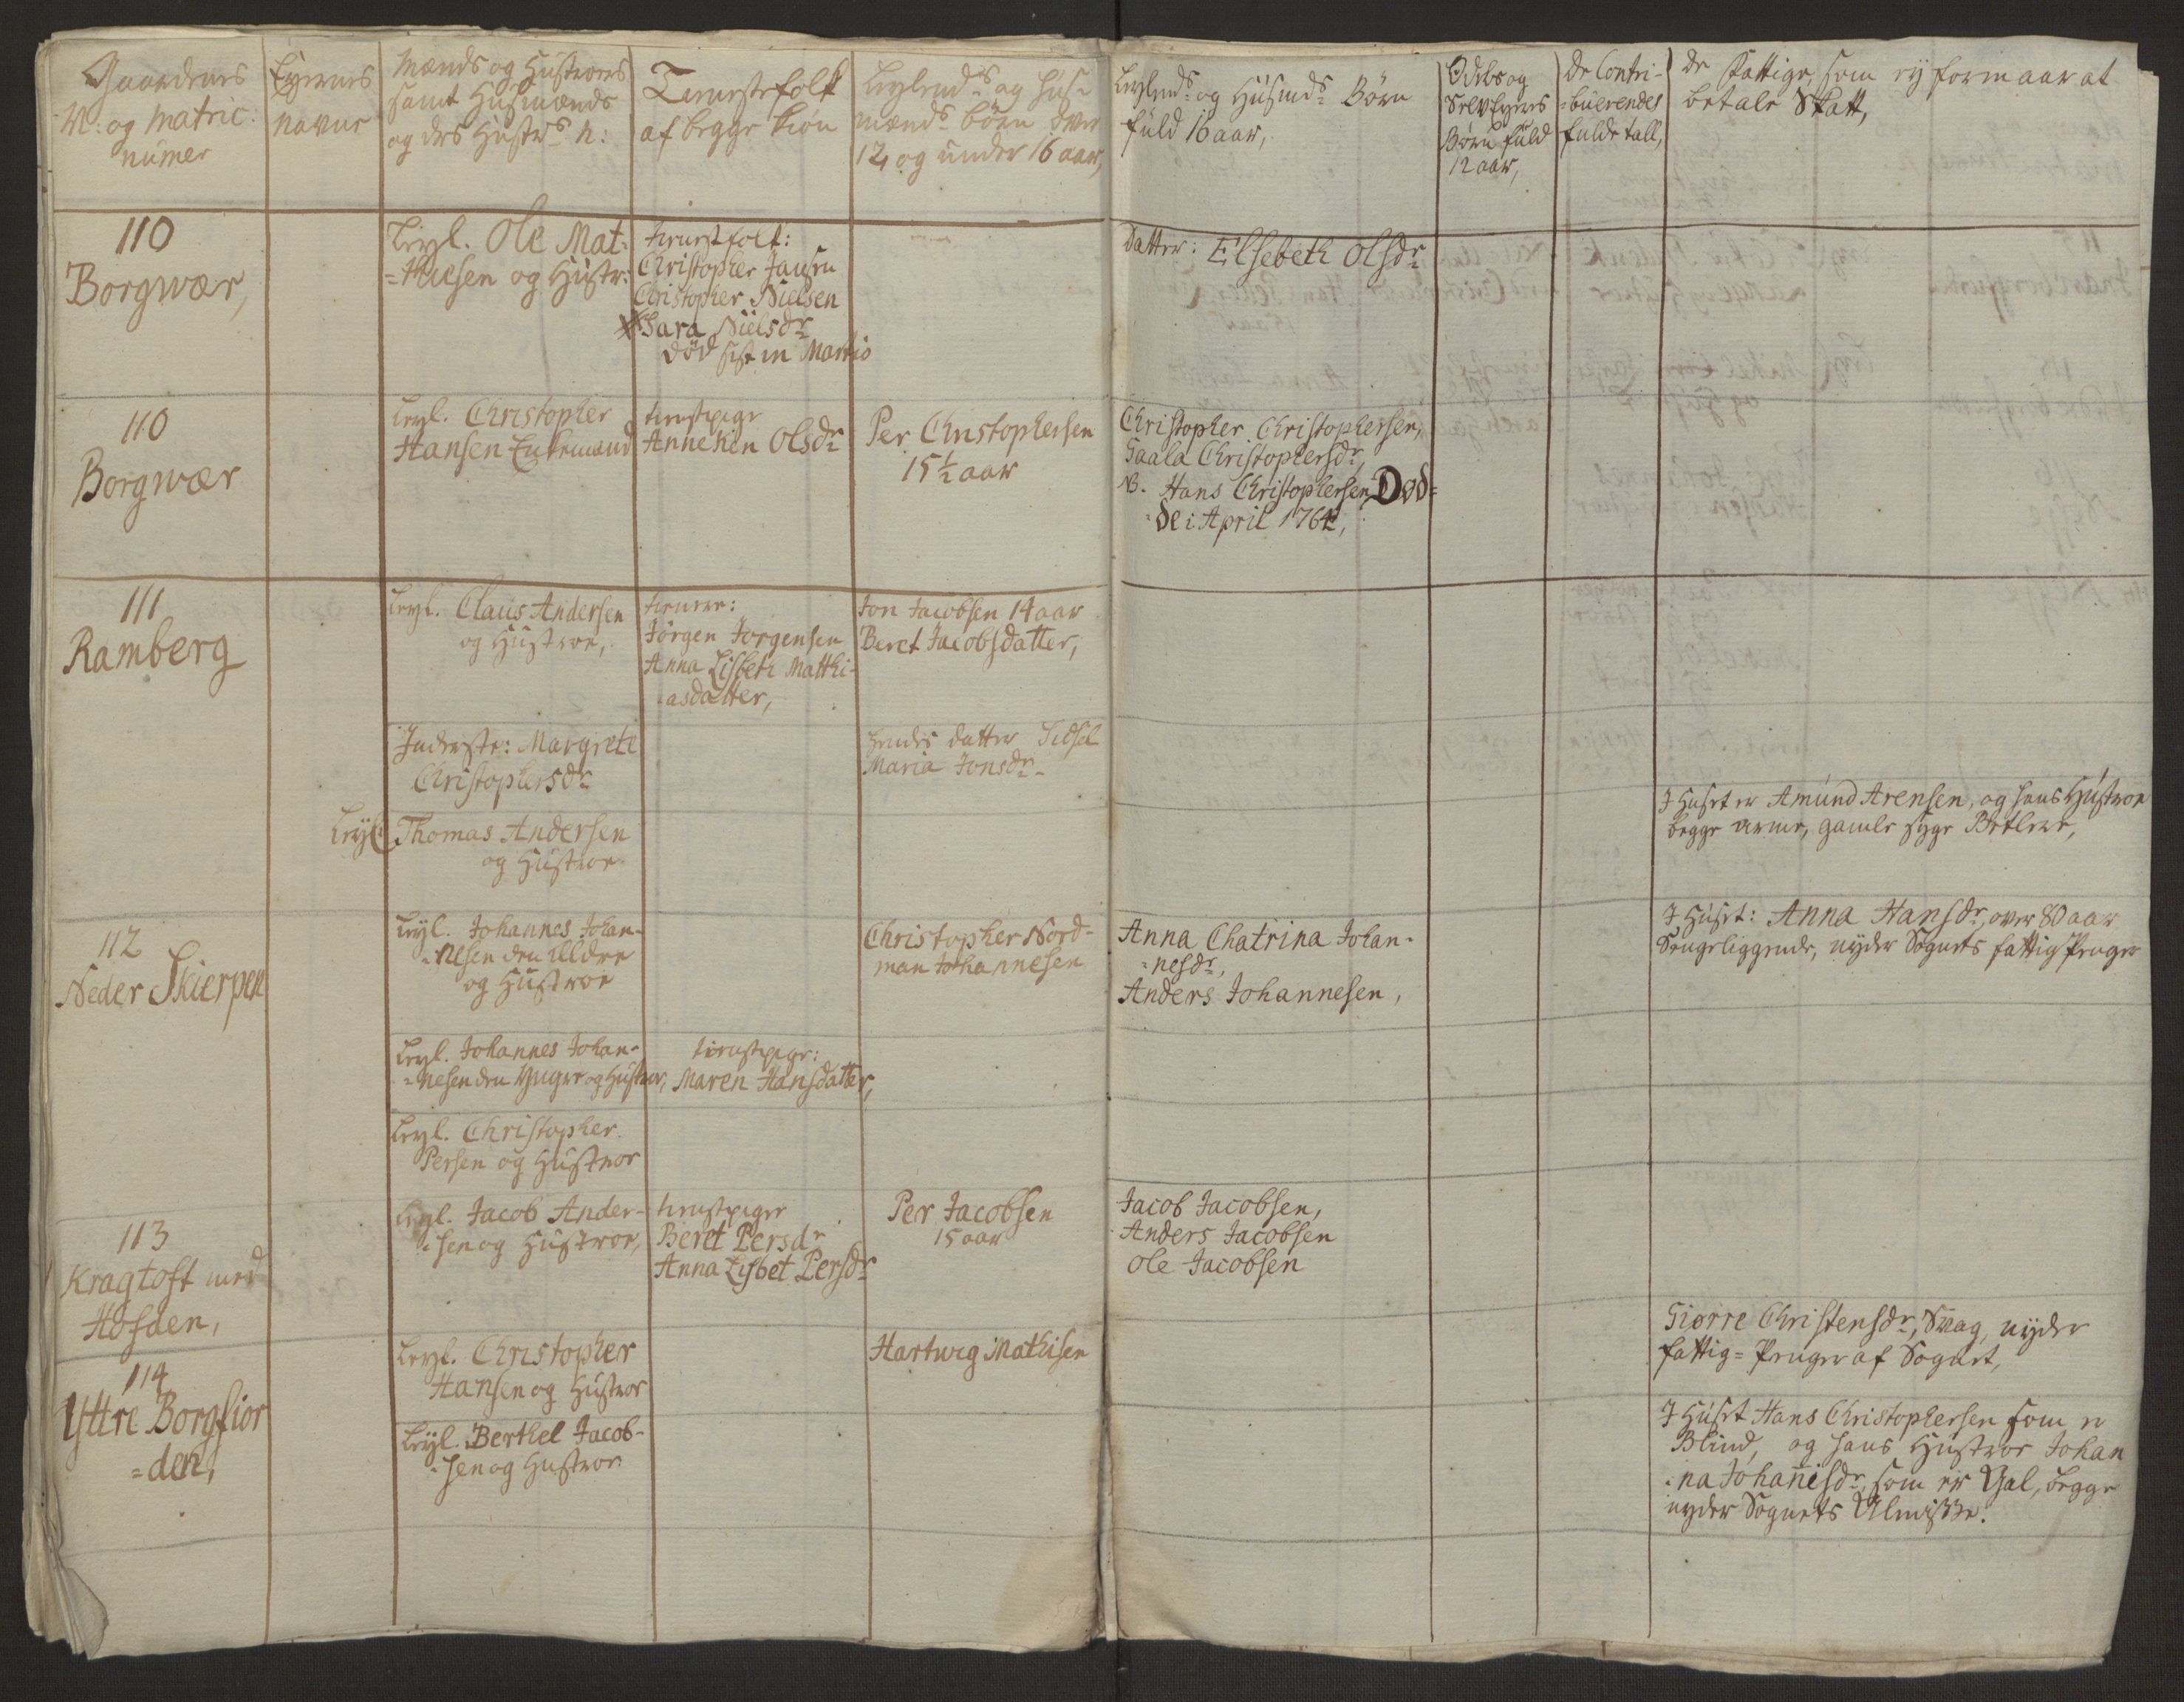 Gaardenes
N: og Matric:
numer
Eyernes
navne
Mænds og Hustroers
samt Husmænds
og des Hustrs n:
Tienestefolk
af begge kiøn
Leylends og Hus-
mænds børn over
12 og under 16 aar,
Leylends og Husmds Børn
fuld 16 aar,
Odels og
SelvEyeres
Børn fuld
12 aar,
De Contri-
=buerendes
fulde tall,
de Fattige, som ey formaar at
betale Skatt,
110
Borgwær,
Leyl. Ole Mat-
=thiesen og Hustr:
tienestfolk:
Christopher Jansen
Christopher Nielsen
Sara Nielsdr
død sist in Martio
Datter: Elsebeth Olsdr
110
Borgwær
Leyl. Christopher
Hansen Enkemand
tienstpige
Anneken Olsdr
Per Christophersen
15½ aar
Christopher Christophersen,
Gaala Christophersdr,
NB. Hans Christophersen Død-
=de i April 1764,
111
Ramberg
Leyl. Claus Andersen
og Hustroe,
tienere:
Jörgen Jorgensen
Anna Lisbeth Matthi-
asdatter,
Jon Jacobsen 14 aar
Beret Jacobsdatter,
Inderste: Margrete
Christophersdr
hendes datter Sidsel
Maria Jonsdr
Leyl Thomas Andersen
og Hustroe
I Huset er Amund Arensen, og hans Hustroe
begge arme, gamle syge Betlere,
112
Neder Skierpen
Leyl. Johannes Johan-
=nesen den Ældre
og Hustroe
Christopher Nord-
man Johannesen
Anna Chatrina Johan-
=nesdr,
Anders Johannesen,
I Huset: Anna Hansdr, over 80 aar
Sengeliggende, nyder Sognets fattig Penger
Leyl. Johannes Johan-
=nesen den Ynger og Hustroe,
tienstpige:
Maren Hansdatter,
Leyl. Christopher
Persen og Hustroe
113
Kragtoft med
Hosden,
Leyl. Jacob Ander-
=sen og Hustroe,
tienstpiger
Beret Persdr
Anna Lisbet Persdr
Per Jacobsen
15 aar
Jacob Jacobsen,
Anders Jacobsen
Ole Jacobsen
Giørre Christensdr, Svag, nyder
fattig-Penger af Sognet,
114
Yttre Borgfior
=den,
Leyl. Christopher
Hansen og Hustroe
Hartwig Mathisen
Leyl. Berthel Jacob-
=sen og Hustroe
I Huset Hans Christophersen som er
Blind, og hans Hustroe Johan
=na Johanisdr, som er Gal, begge
nyder Sognets Almisse.